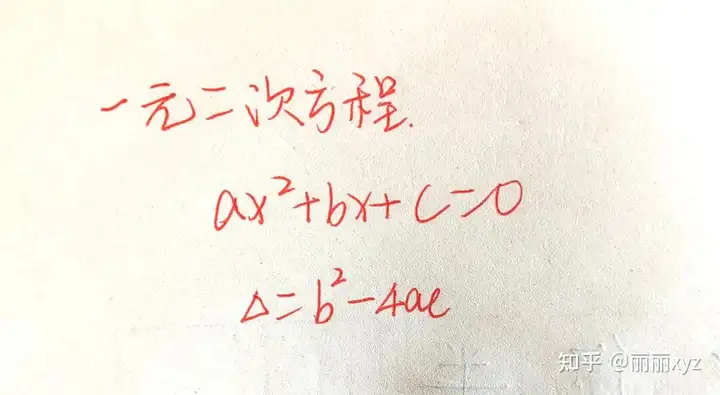 一元二次方程.
ax²+bx+c=0
Δ=b²-4ac
知乎 @丽丽xyz